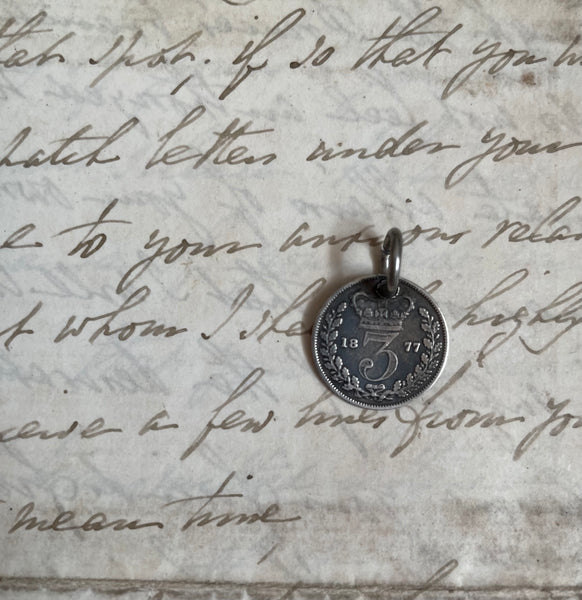 that spot; if so that you
patch letters under your
to your anxious rela
whom I sh highly
18 3 77
a few lines from yo
mean time